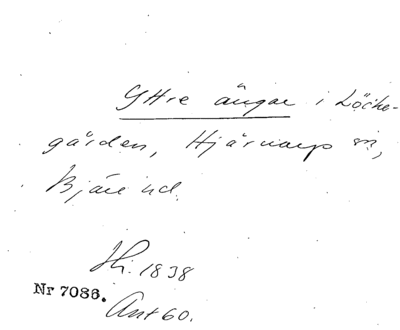 Yttre ängar i Löcke-
gården, Hjärnarp sn,
Bjäre hd.
Hi. 1838
Nr 7086.
Ant 60.